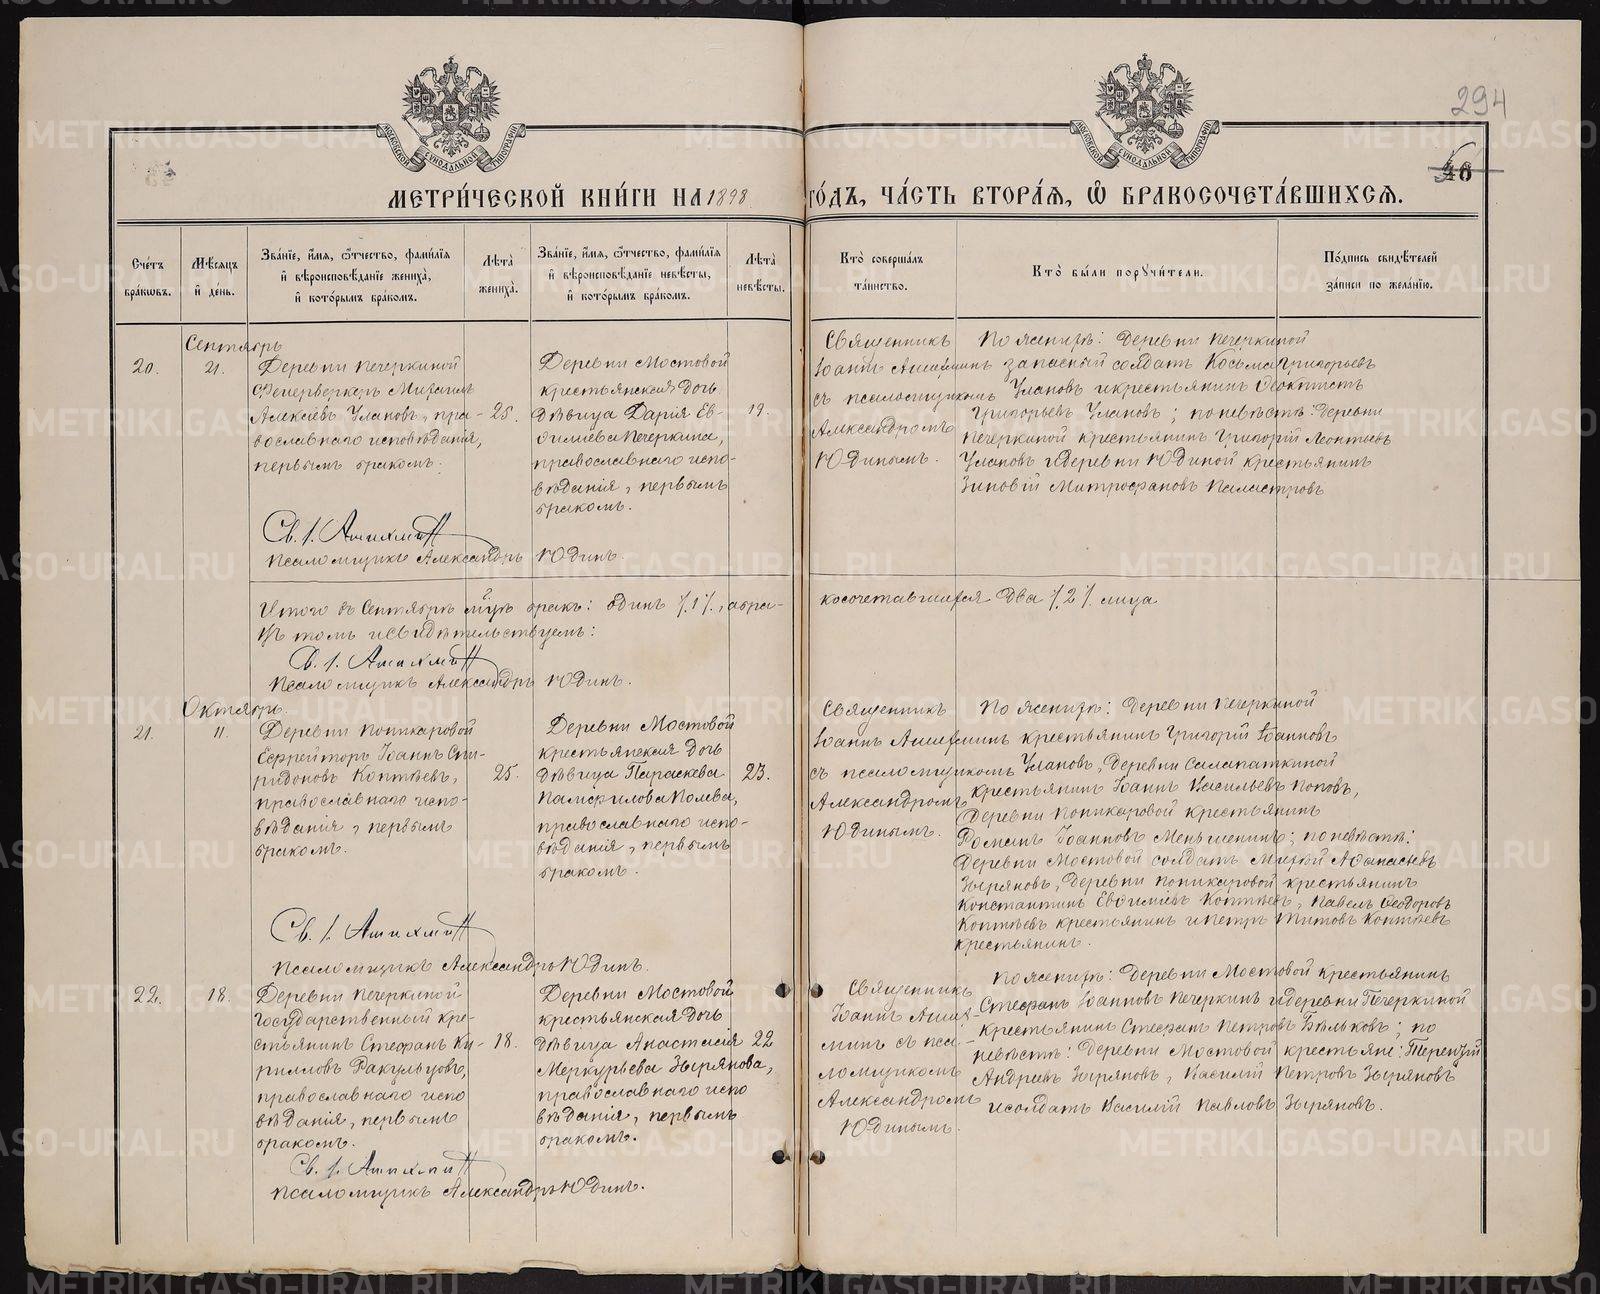 294
46
МОСКОВСКОЙ СѴНОДАЛЬНОЙ ТИПОГРАФІИ
МОСКОВСКОЙ СѴНОДАЛЬНОЙ ТИПОГРАФІИ
МЕТРИ́ЧЕСКОЙ КНИ́ГИ НА 1898 ГО́ДЪ, ЧА́СТЬ ВТОРА́Я, Ѽ БРАКОСОЧЕТА́ВШИХСЯ.
Сче́тъ
бра́кѡвъ.
Мѣ́сяцъ
и҆ де́нь.
Зва́нїе, и҆́мя, ѻ҆́тчество, фами́лїя
и҆ вѣроисповѣ́данїе жениха̀,
и҆ кото́рымъ бра́комъ.
Лѣ́та
жениха̀.
Зва́нїе, и҆́мя, ѻ҆́тчество, фами́лїя
и҆ вѣроисповѣ́данїе невѣ́сты,
и҆ кото́рымъ бра́комъ.
Лѣ́та
невѣ́сты.
Кто̀ соверша́лъ
та́инство.
Кто̀ бы́ли поручи́тели.
По́дпись свидѣ́телей
за́писи по жела́нїю.
Сентябрь
20.
21.
Деревни Печеркиной
Фейерверкеръ Михаилъ
Алексѣевъ Улановъ, пра-
вославнаго исповѣданія,
первымъ бракомъ.
25.
Деревни Мостовой
крестьянская дочь
дѣвица Дарія Ев-
ѳиміева Печеркина,
православнаго испо-
вѣданія, первымъ
бракомъ.
19.
Священникъ
Іоаннъ Ашихминъ
съ псаломщикомъ
Александромъ
Юдинымъ.
По женихѣ: деревни Печеркиной
запасный солдатъ Косьма Григорьевъ
Улановъ и крестьянинъ Ѳеоктистъ
Григорьевъ Улановъ; по невѣстѣ: деревни
Печеркиной крестьянинъ Григорій Леонтьевъ
Улановъ и деревни Юдиной крестьянинъ
Зиновій Митрофановъ
Св. І. Ашихминъ
Псаломщикъ Александръ Юдинъ.
Итого въ Сентябрѣ м-цѣ бракъ: одинъ /.1/., а бра-
косочетавшихся два /.2/. лица
Въ томъ и свидѣтельствуемъ:
Св. І. Ашихминъ
Псаломщикъ Александръ Юдинъ.
Октябрь.
21.
11.
Деревни Поникаровой
Ефрейторъ Іоаннъ Спи-
ридоновъ Коптѣевъ,
православнаго испо-
вѣданія, первымъ
бракомъ.
25.
Деревни Мостовой
крестьянская дочь
дѣвица Параскева
Памфилова Полева,
православнаго испо-
вѣданія, первымъ
бракомъ.
23.
Священникъ
Іоаннъ Ашихминъ
съ псаломщикомъ
Александромъ
Юдинымъ.
По женихѣ: деревни Печеркиной
крестьянинъ Григорій Іоанновъ
Улановъ, деревни Салапаткиной
крестьянинъ Іоаннъ Васильевъ Поповъ,
деревни Поникаровой крестьянинъ
Романъ Іоанновъ Меньшенинъ; по невѣстѣ:
деревни Мостовой солдатъ Михѣй Аѳанасьевъ
Зыряновъ, деревни Поникаровой крестьянинъ
Константинъ Евѳиміевъ Коптѣевъ, Павелъ Ѳеодоровъ
Коптѣевъ крестьянинъ и Петръ Титовъ Коптѣевъ
крестьянинъ.
Св. І. Ашихминъ
Псаломщикъ Александръ Юдинъ.
22.
18.
Деревни Печеркиной
Государственный кре-
стьянинъ Стефанъ Ки-
рилловъ Ракульцовъ,
православнаго испо
вѣданія, первымъ
бракомъ.
18.
Деревни Мостовой
крестьянская дочь
дѣвица Анастасія
Меркурьева Зырянова,
православнаго испо
вѣданія, первымъ
бракомъ.
22
Священникъ
Іоаннъ Аших-
минъ съ пса-
ломщикомъ
Александромъ
Юдинымъ.
По женихѣ: деревни Мостовой крестьянинъ
Стефанъ Іоанновъ Печеркинъ и деревни Печеркиной
крестьянинъ Стефанъ Петровъ Бѣльковъ; по
невѣстѣ: деревни Мостовой крестьяне: Терентій
Андреевъ Зыряновъ, Василій Петровъ Зыряновъ
и солдатъ Василій Павловъ Зыряновъ.
Св. І. Ашихминъ
Псаломщикъ Александръ Юдинъ.